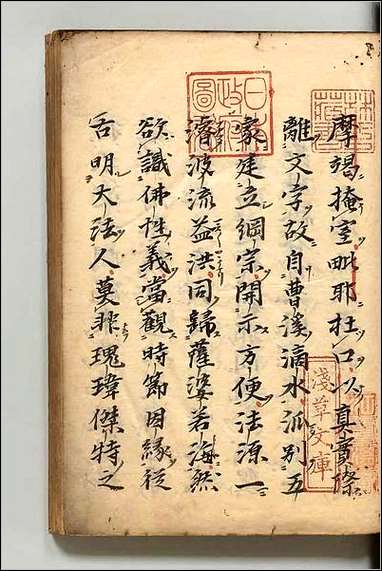 摩竭掩室毗耶杜口以真實際
離文字故自曹溪滴水派別五
家建立綱宗開示方便法源一
濬波流益洪同歸薩婆若海然
欲識佛性義當觀時節因緣從
古明大法人莫非瑰瑋傑特之
日本政府圖書
淺草文庫